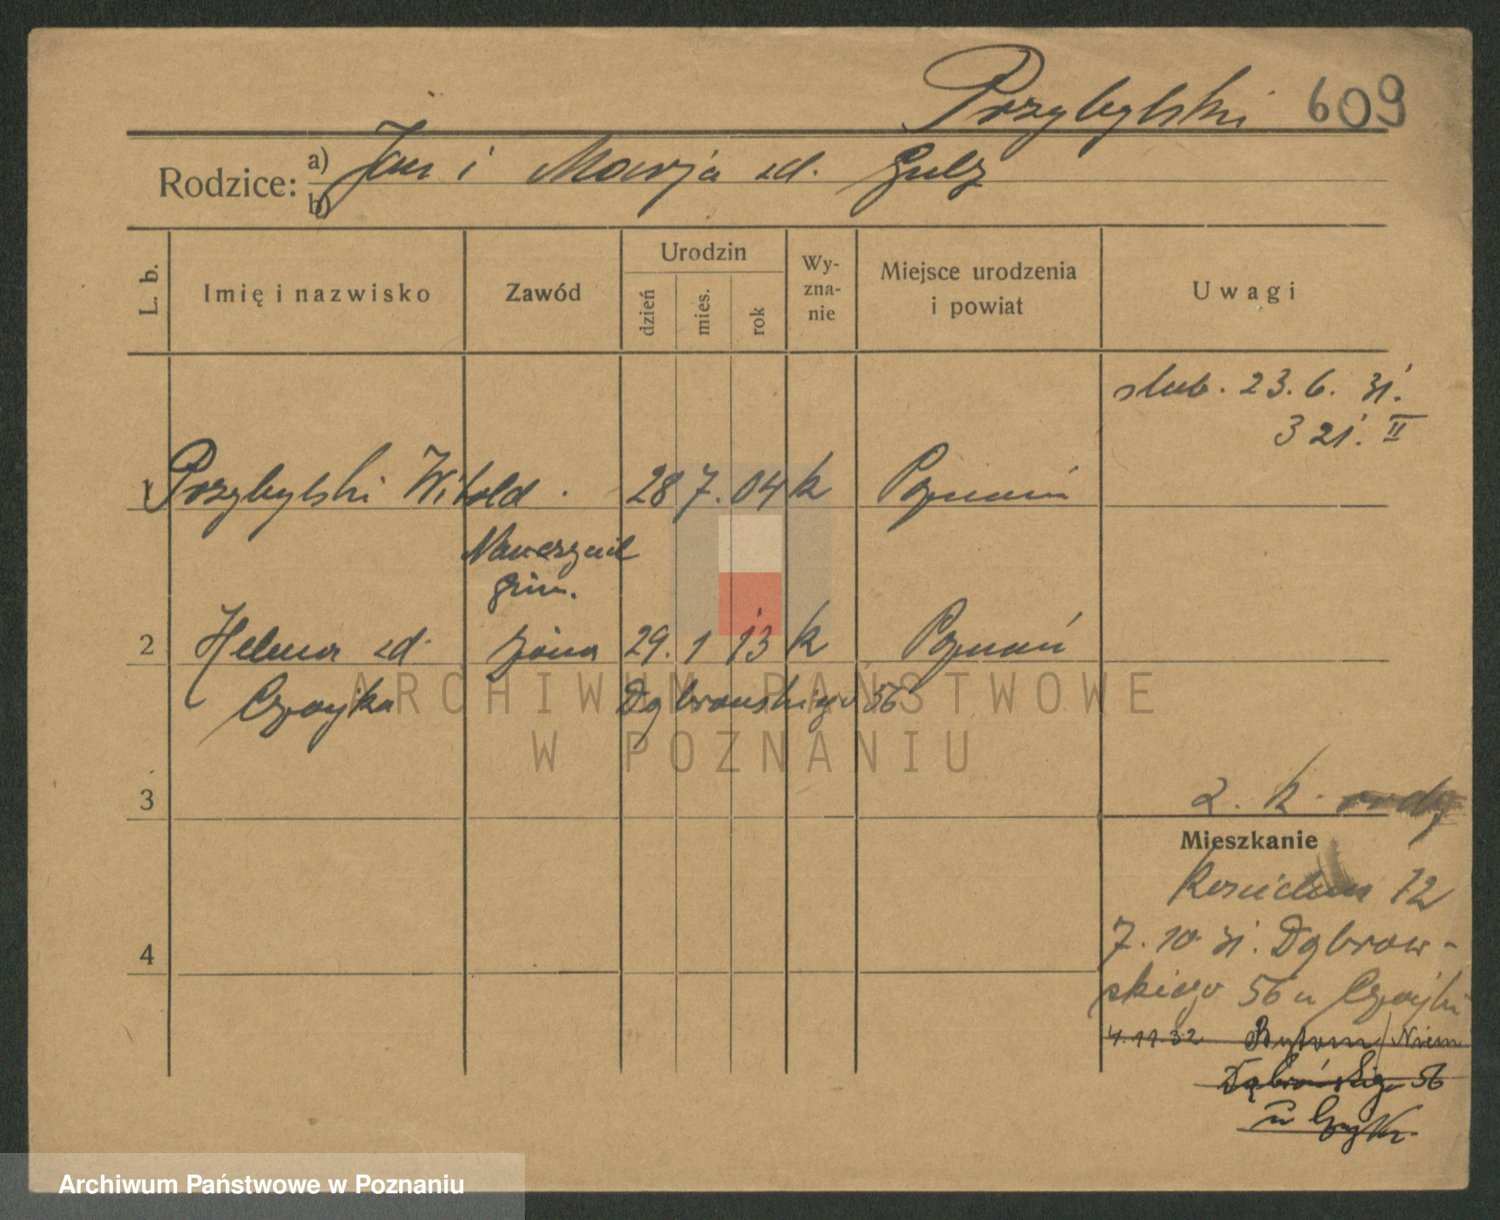 Przybylski 609
Rodzice: a) Jan i Marja zd. Gulz
b)
L. b. Imię i nazwisko Zawód Urodzin dzień mies. rok Wyznanie Miejsce urodzenia i powiat Uwagi
ślub. 23. 6. 31.
321. II
1 Przybylski Witold. 28 7. 04 k Poznań
Nauczyciel
gim.
2 Helena zd. żona 29. 1 13 k Poznań
Czajka Dąbrowskiego 56
ARCHIWUM PAŃSTWOWE
W POZNANIU
3 2. k.
Mieszkanie
12
7. 10 31. Dąbrow-
4
skiego 56 u Czajki
4.11.32 Bytom/Niem
Dąbrowskiego 56
u
Archiwum Państwowe w Poznaniu